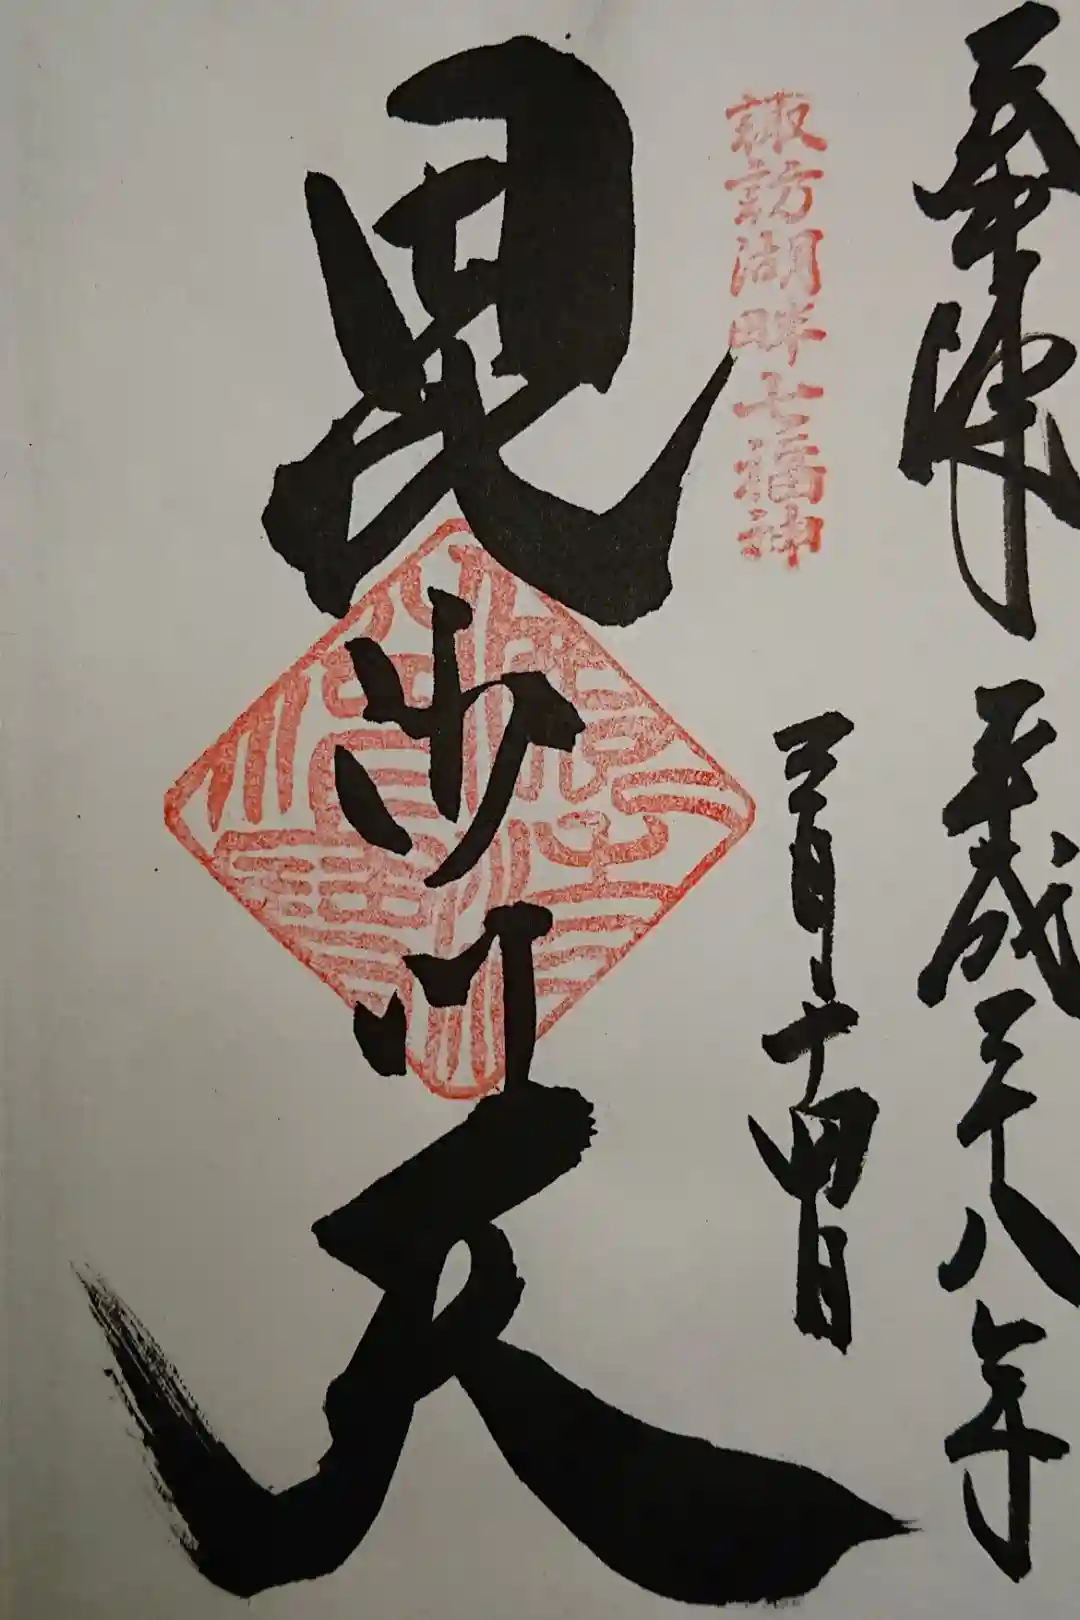 奉拝 平成二十八年
三月十四日
諏訪湖畔七福神
毘沙門天